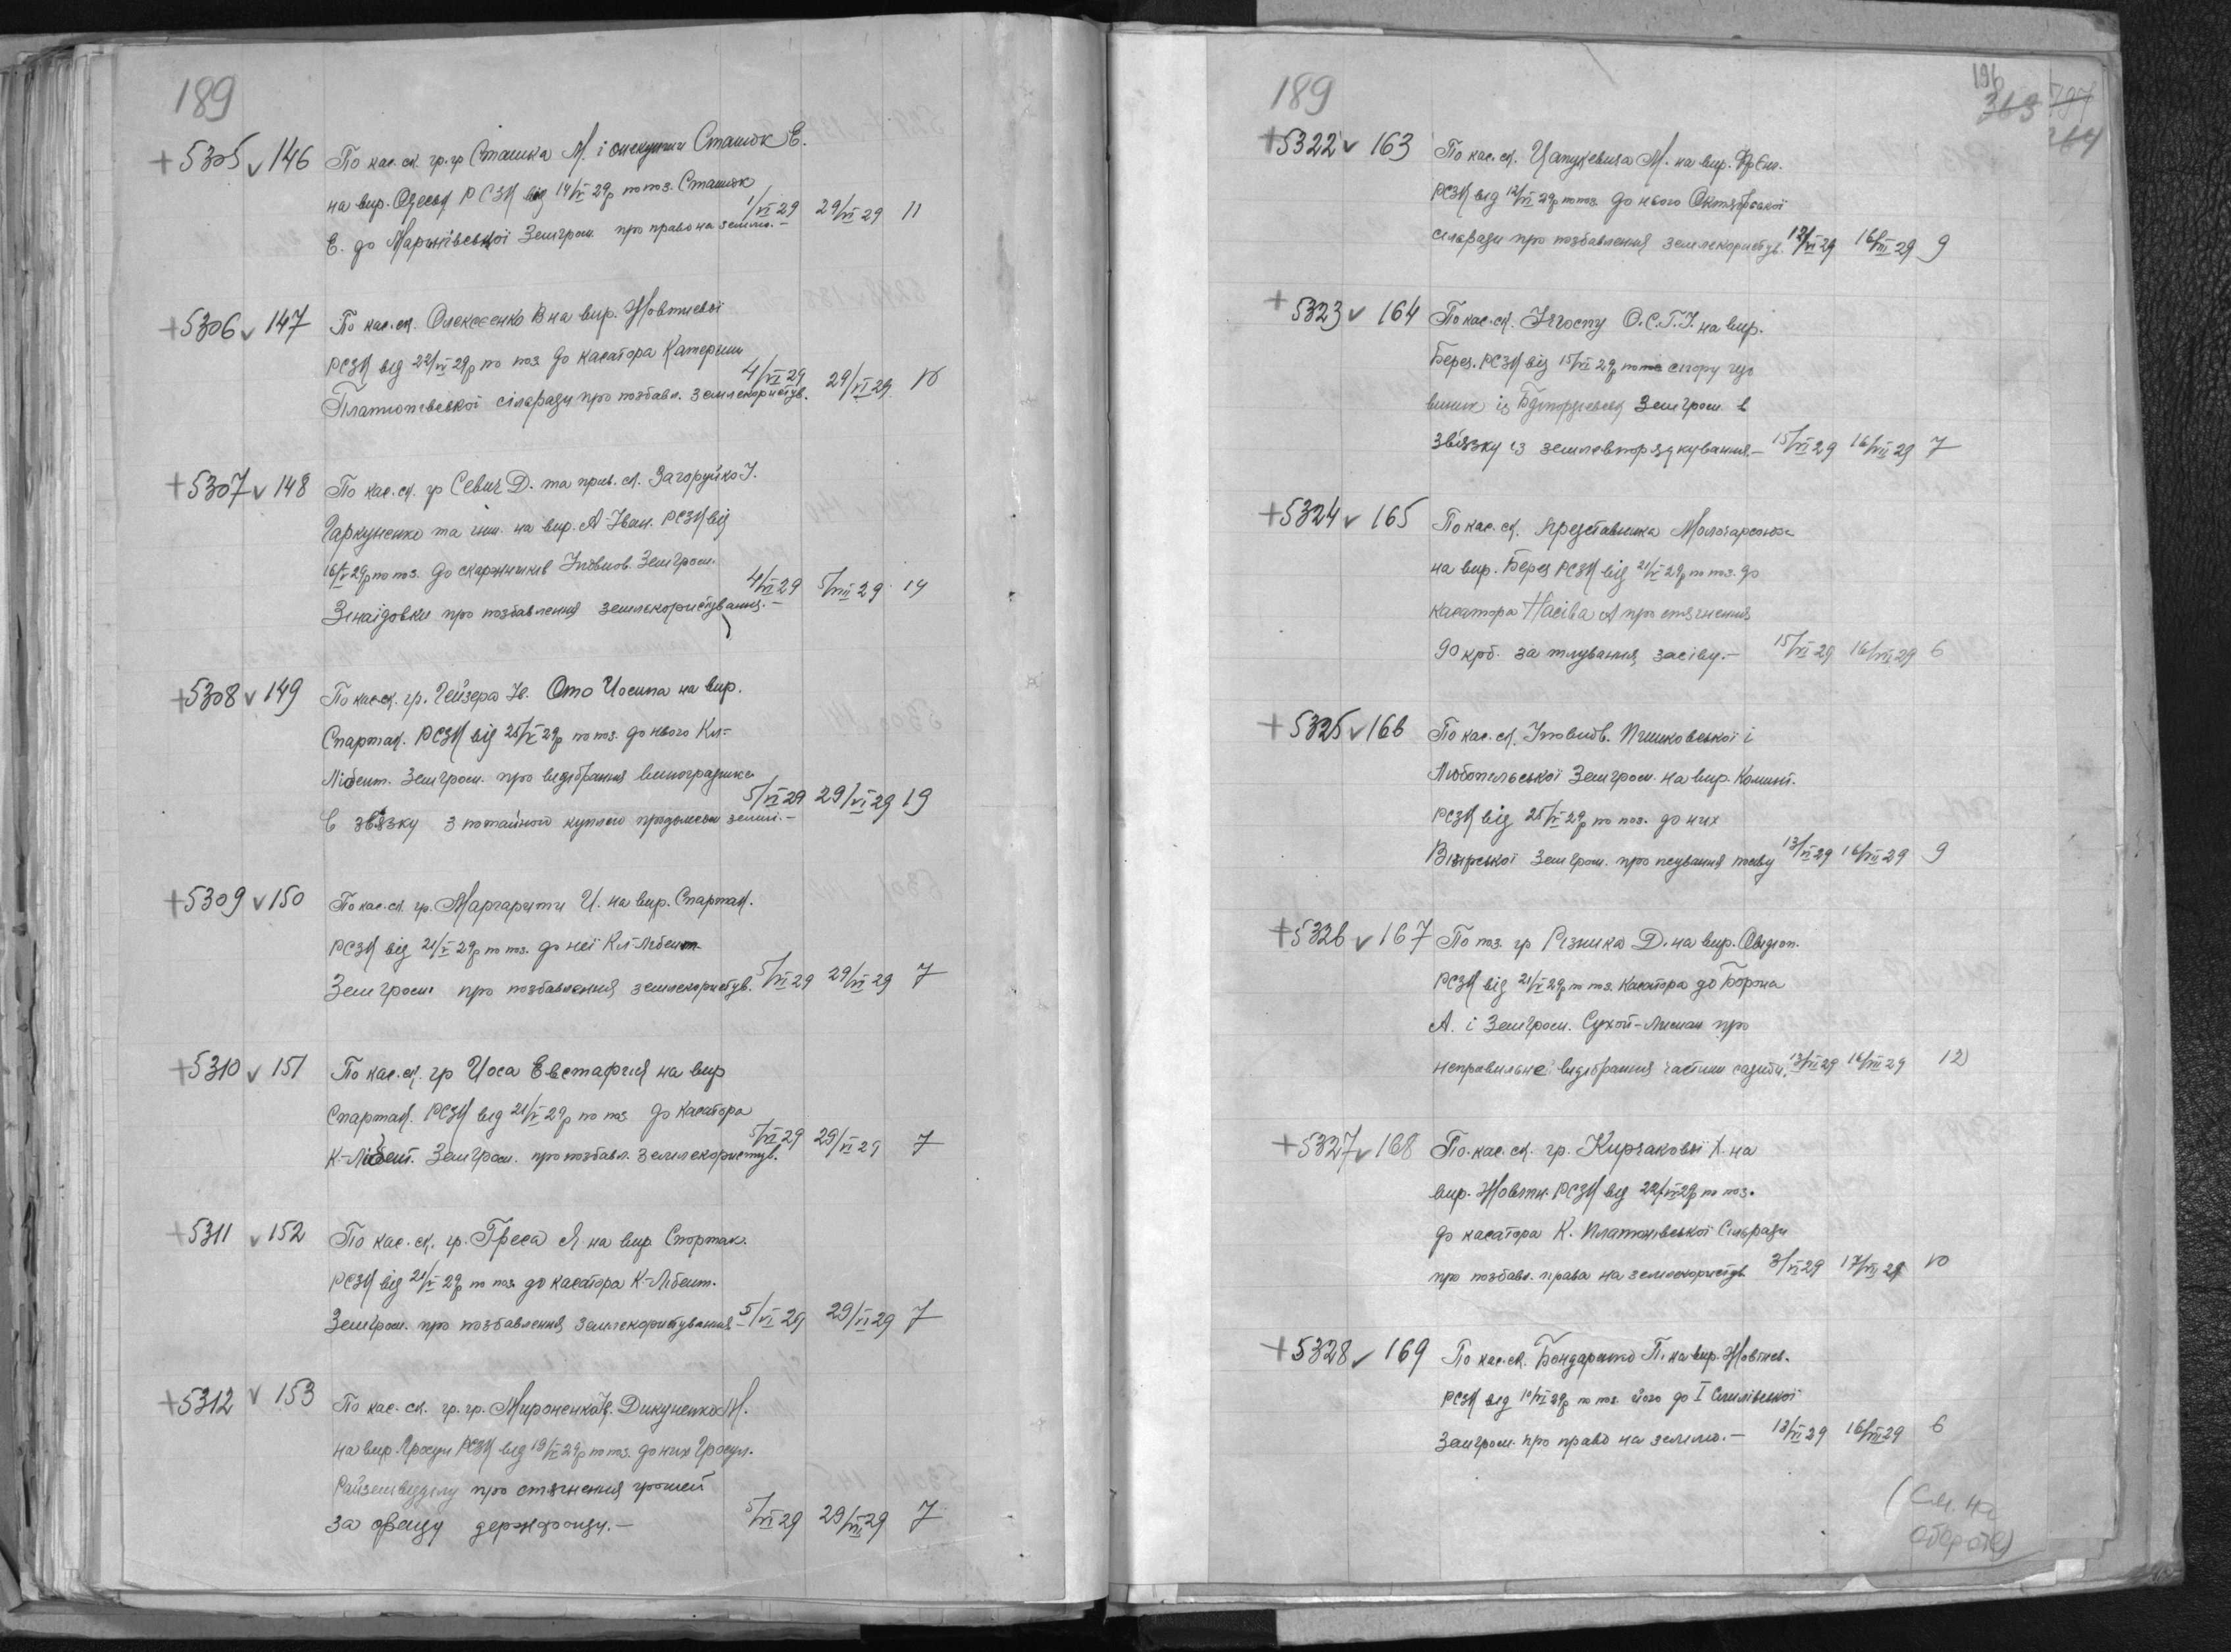 189
+5305 v 146 По кас. ск. гр. гр Сташка М. і опекунки Сташок Е.
на вир. Одеськ РСЗК від 14/VI 29р по поз. Сташок
Е. до Мар'янівської Земгром. про право на землю.- 1/VI 29 29/VI 29 11
+5306 v 147 По кас. ск. Олексєєнко В на вир. Жовтневої
РСЗК від 22/VI 29р по поз до касатора Катерино
Платонівської сільради про позбавл. землекористув. 4/VI 29 29/VI 29 10
+5307 v 148 По кас. ск. гр Севич Д. та прив. ск. Загоруйко І.
Гаркуненко та інш. на вир. А-Іван. РСЗК від
16/V 29р по поз. до скаржників Земгром.
Зінаідовки про позбавлення землекористування.- 4/VI 29 5/VII 29 14
+5308 v 149 По кас. ск. гр. Гейзера Ів. Ото Иосипа на вир.
Спартак. РСЗК від 25/V 29р по поз. до нього Кл-
Лібент. Земгром. про відібрання виноградника
в звязку з потайною куплею продажем землі.- 5/VI 29 29/VI 29 19
+5309 v 150 По кас. ск. гр. Маргарити И. на вир. Спартак.
РСЗК від 21/V 29р по поз. до неї Кл-Лібент.
Земгром. про позбавлення землекористув. 5/VI 29 29/VI 29 7
+5310 v 151 По кас. ск. гр Иоса Евстафия на вир
Спартак. РСЗК від 21/V 29р по поз до касатора
К-Лібент. Земгром. про позбавл. землекористув. 5/VI 29 29/VI 29 7
+5311 v 152 По кас. ск. гр. Греса Я. на вир. Спортак.
РСЗК від 21/V 29р по поз. до касатора К-Лібент.
Земгром. про позбавлення землекористування 5/VI 29 29/VI 29 7
+5312 v 153 По кас. ск. гр. гр. Мироненко К. Дикуненко М.
на вир. Гросул РСЗК від 19/IV 29р по поз. до них Гросул.
Райземвідділу про стягнення грошей
за оренду держфонду.- 5/VI 29 29/VI 29 7
189
196
363 797
264
+5322 v 163 По кас. ск. Цапукевича М. на вир. Фр Енг.
РСЗК від 12/VI 29р по поз. до нього Октябрської
сільради про позбавлення землекористув. 12/VI 29 16/VII 29 9
+5323 v 164 По кас. ск. О.С.Г.І. на вир.
Берез. РСЗК від 15/VI 29р по спору що
виник із Земгром. в
звязку із землевпорядкування.- 15/VI 29 16/VII 29 7
+5324 v 165 По кас. ск. представника Молочарсоюза
на вир. Берез РСЗК від 21/V 29р по поз. до
касатора Насіва А про стягнення
90 крб. за псування засіву.- 15/VI 29 16/VII 29 6
+5325 v 166 По кас. ск. Уповнов. і
Любопільської Земгром. на вир. Комінт.
РСЗК від 25/V 29р по поз. до них
Візирської Земгром. про псування посіву 13/VI 29 16/VII 29 9
+5326 v 167 По поз. гр Різника Д. на вир. Овідіоп.
РСЗК від 21/V 29р по поз. касатора до Борона
А. і Земгром. Сухой-Лиман про
неправильне відібрання частини садиби. 13/VI 29 16/VII 29 12
+5327 v 168 По кас. ск. гр. Кирчакової Х. на
вир. Жовтн. РСЗК від 22/VI 29р по поз.
до касатора К. Платонівської Сільради
про позбавл. права на землекористув. 3/VI 29 17/VII 29 10
+5328 v 169 По кас. ск. Бондаренко П. на вир. Жовтнев.
РСЗК від 10/VI 29р по поз. його до I
Земгром. про право на землю.- 13/VI 29 16/VII 29 6
(См. на
обороте)